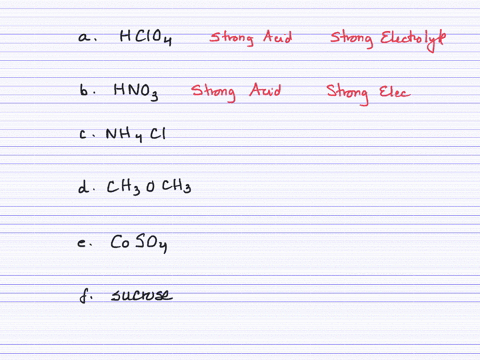 a. HClO4 Strong Acid Strong Electrolyte
b. HNO3 Strong Acid Strong Elec
c. NH4Cl
d. CH3OCH3
e. CoSO4
f. sucrose